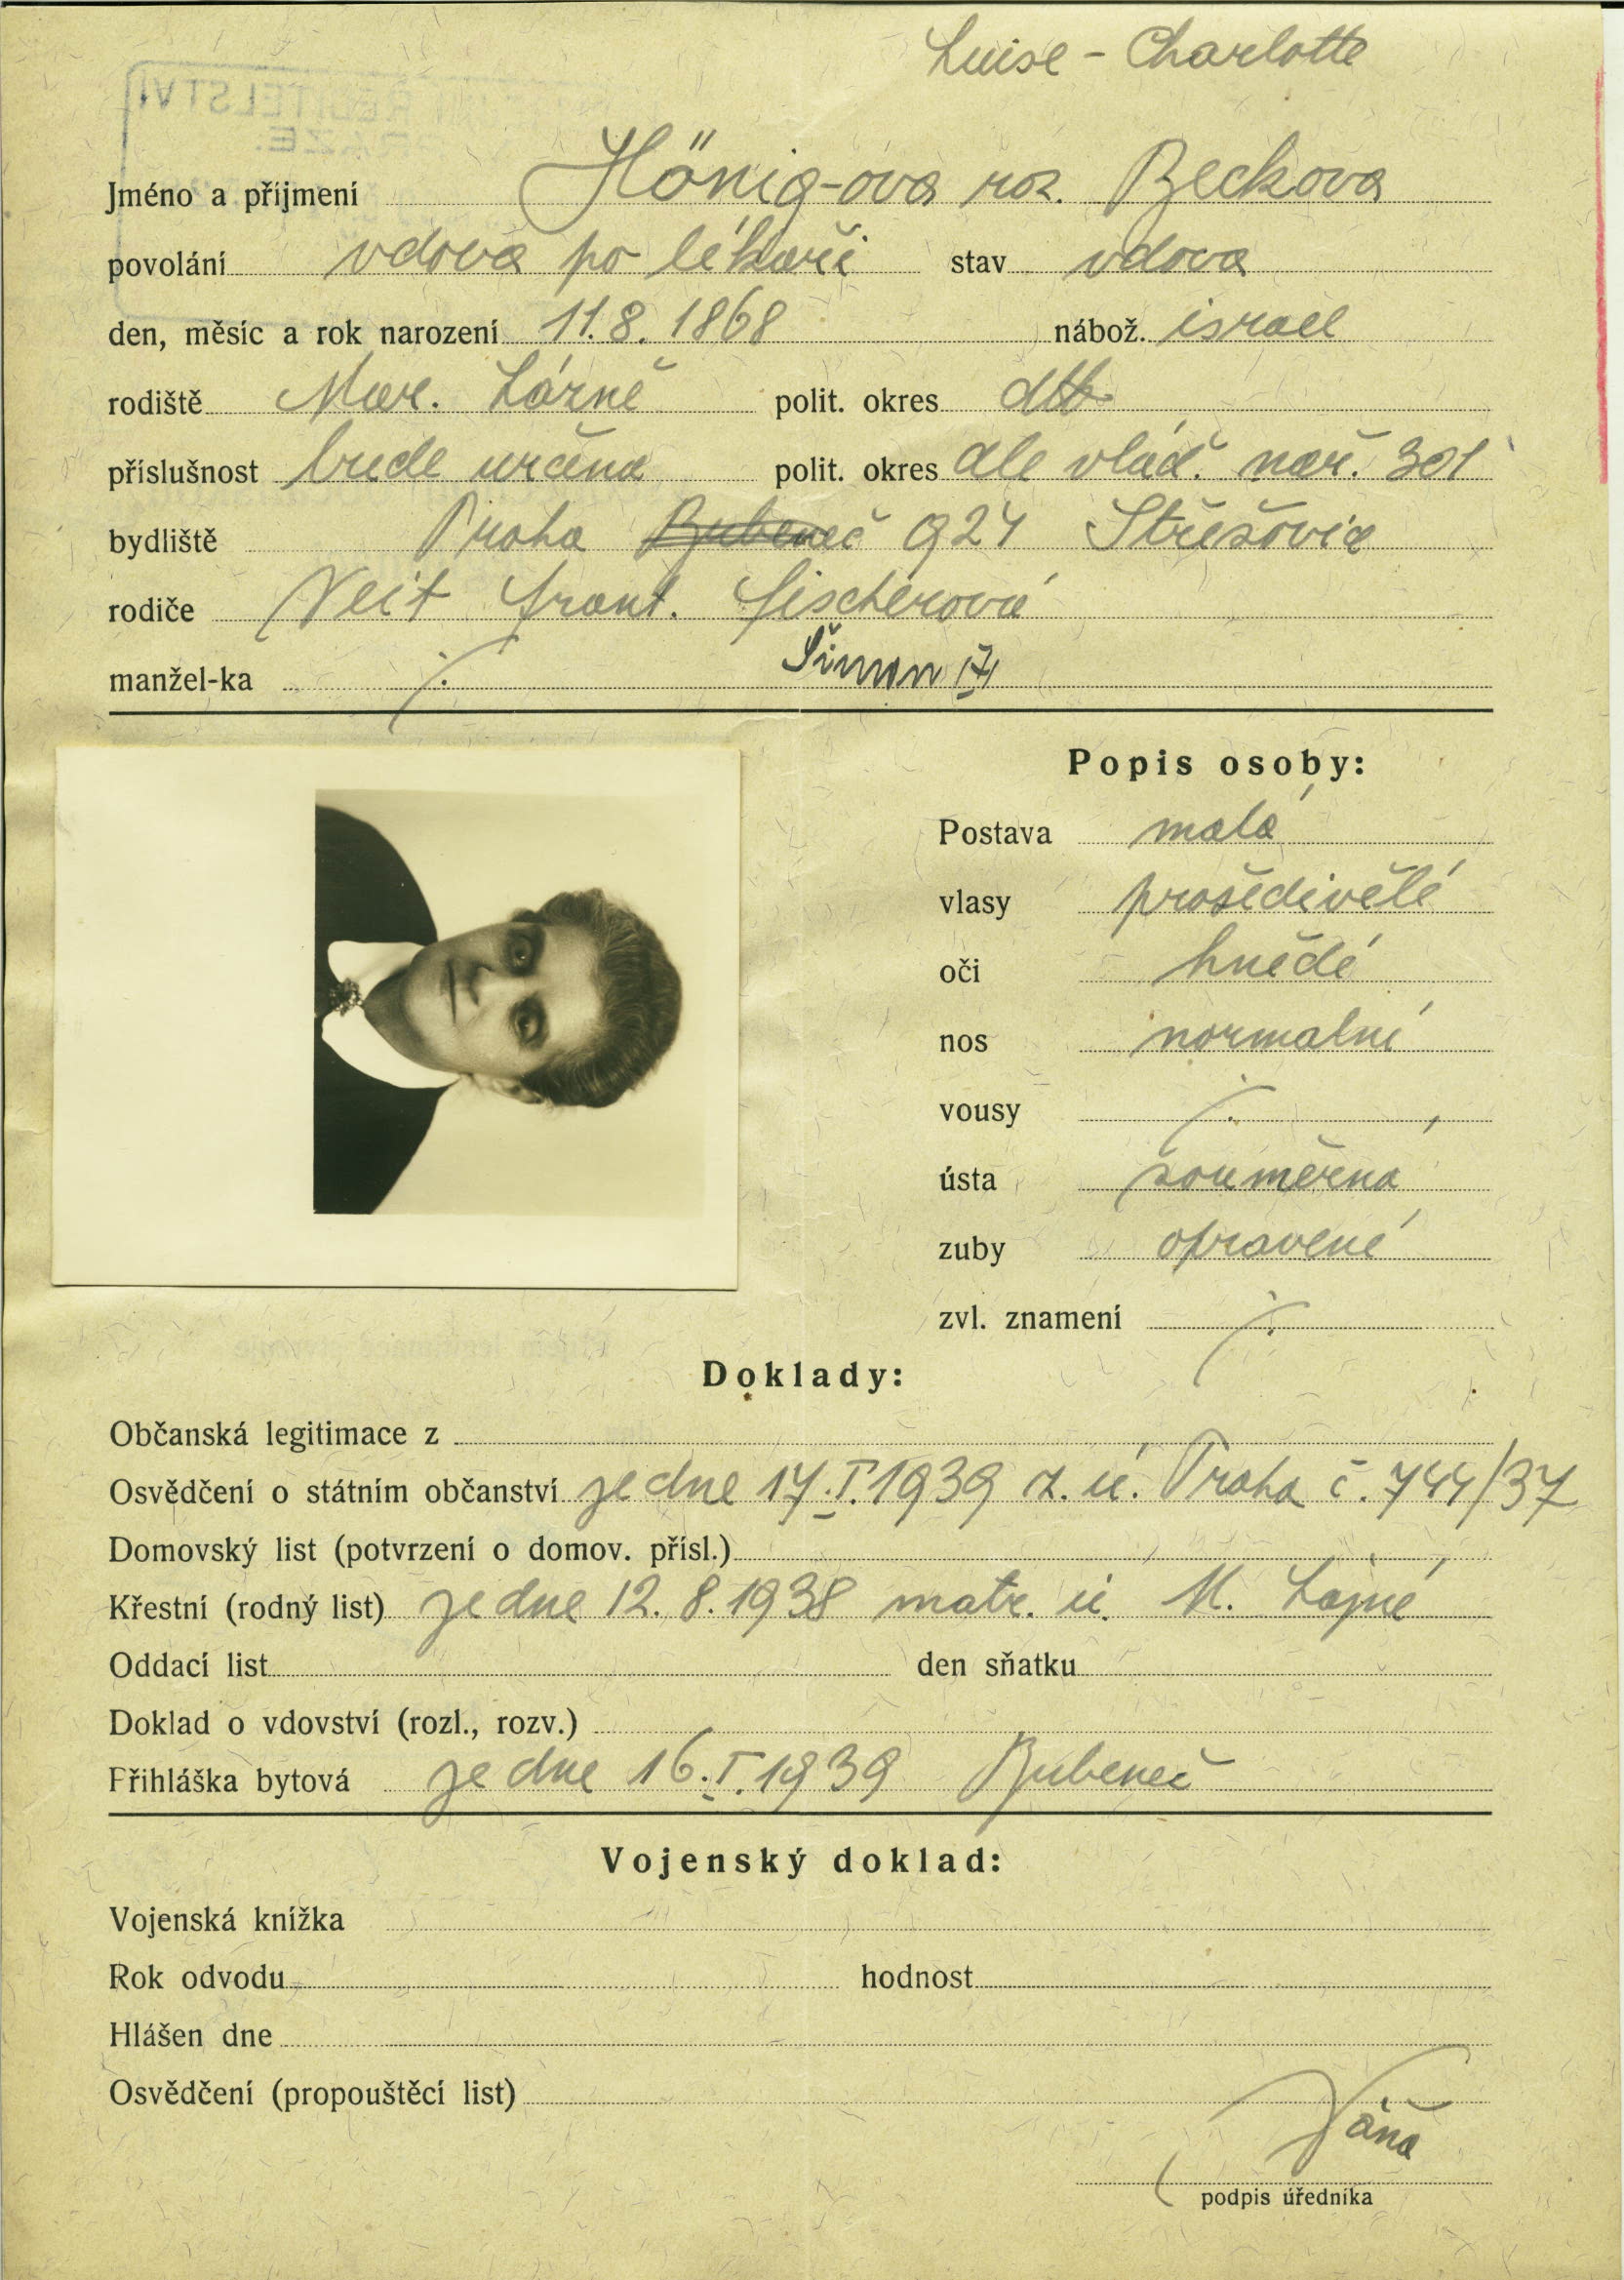 Luise - Charlotte
Jméno a příjmení Hönig-ova roz. Beckova
povolání vdova po lékaři stav vdova
den, měsíc a rok narození 11.8. 1868 nábož. israel
rodiště Mar. Lázně polit. okres dtto
příslušnost bude určena polit. okres dle vlád. nař. 301
bydliště Praha Bubeneč 924 Střešovice
rodiče Veit Frant. Fischerová
manžel-ka ·/. Šimon
Popis osoby:
Postava malá
vlasy prošedivělé
oči hnědé
nos normalní
vousy ·/.
ústa souměrná
zuby opravené
zvl. znamení ·/.
Doklady:
Občanská legitimace z
Osvědčení o státním občanství ze dne 17.I.1939 z. ú. Praha č. 744/37
Domovský list (potvrzení o domov. přísl.)
Křestní (rodný list) ze dne 12. 8. 1938 matr. ú. M. Lázně
Oddací list den sňatku
Doklad o vdovství (rozl., rozv.)
Přihláška bytová ze dne 16.I.1939 Bubeneč
Vojenský doklad:
Vojenská knížka
Rok odvodu hodnost
Hlášen dne
Osvědčení (propouštěcí list)
Váňa
podpis úředníka